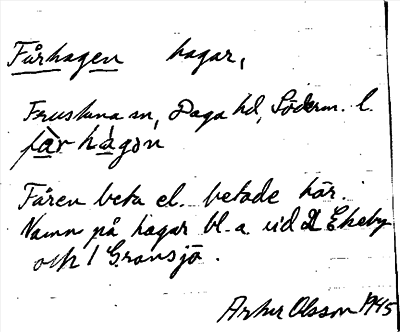 Fårhagen hagar,
Frustuna sn, Daga hd, Söderm. l.
fàr hàgon
Fåren beta el. betade här.
Namn på hagar bl. a. vid Ekeby
och Gränsjö.
Artur Olsson 1945